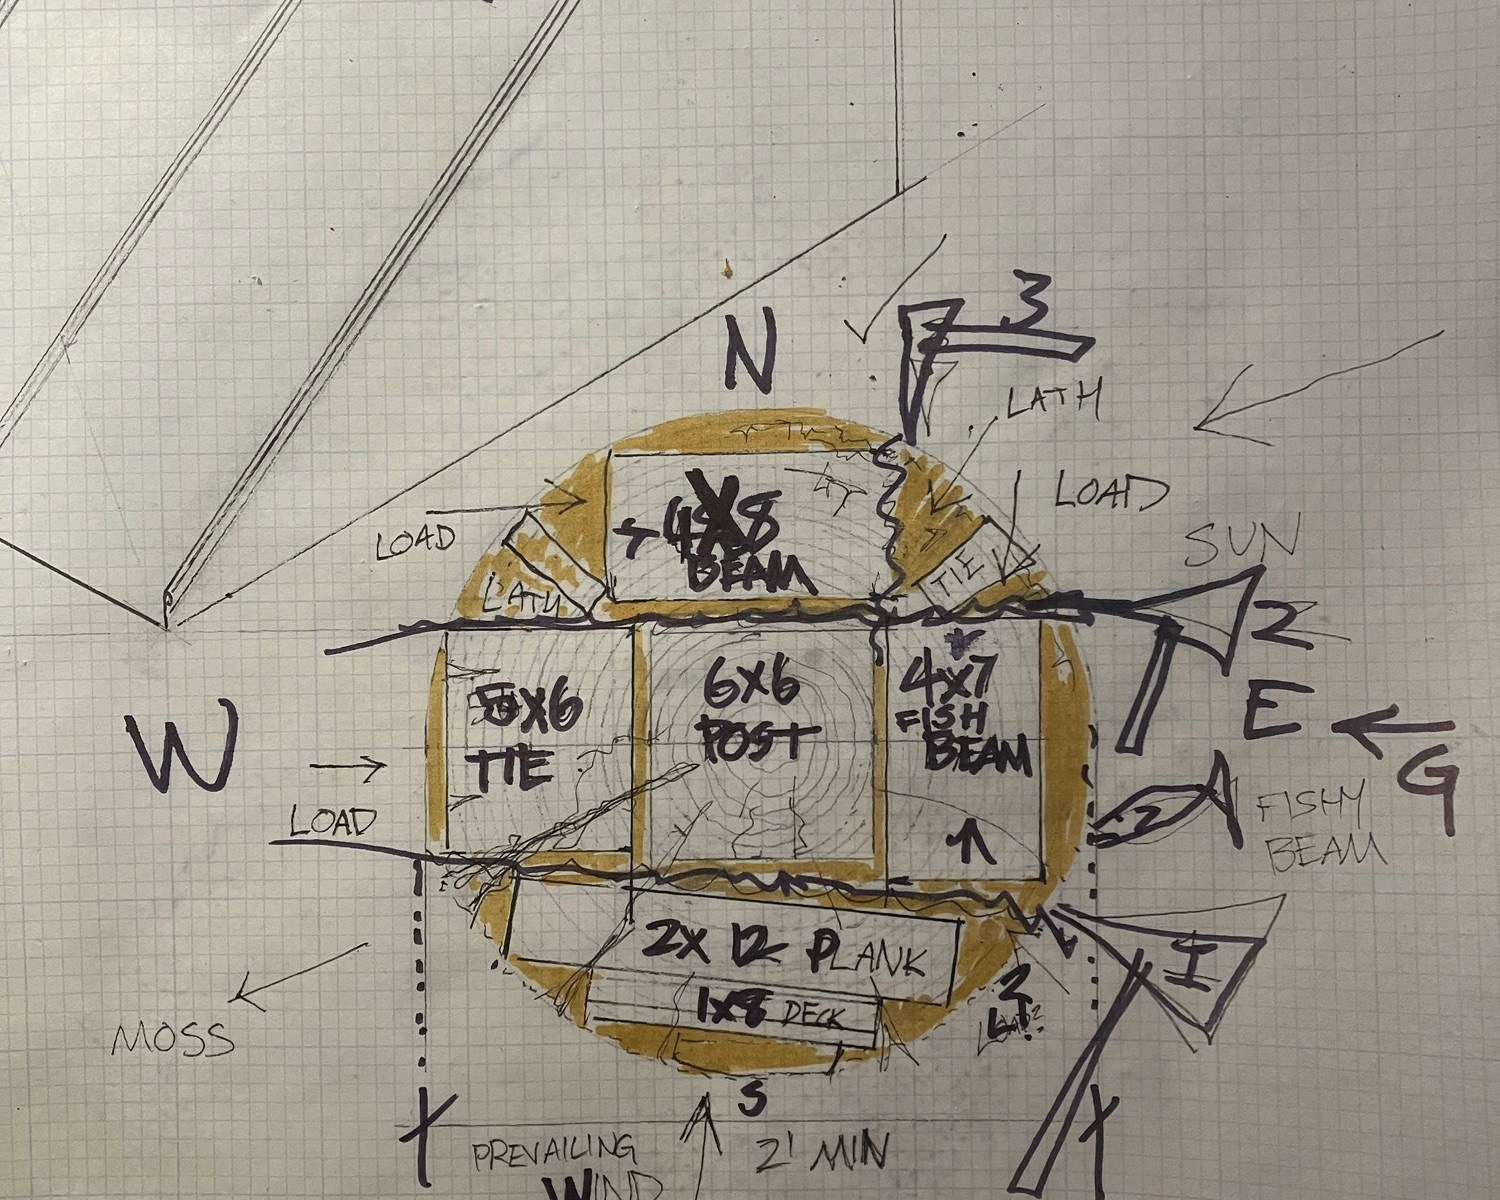 N
3
LATH
LOAD
LOAD
SUN
4X8
BEAM
LATH
TIE
2
W
5X6
TIE
6X6
POST
4X7
FISH
BEAM
E
G
LOAD
2
FISHY
BEAM
2X 12 PLANK
1X8 DECK
1
2
MOSS
S
PREVAILING
WIND
2' MIN